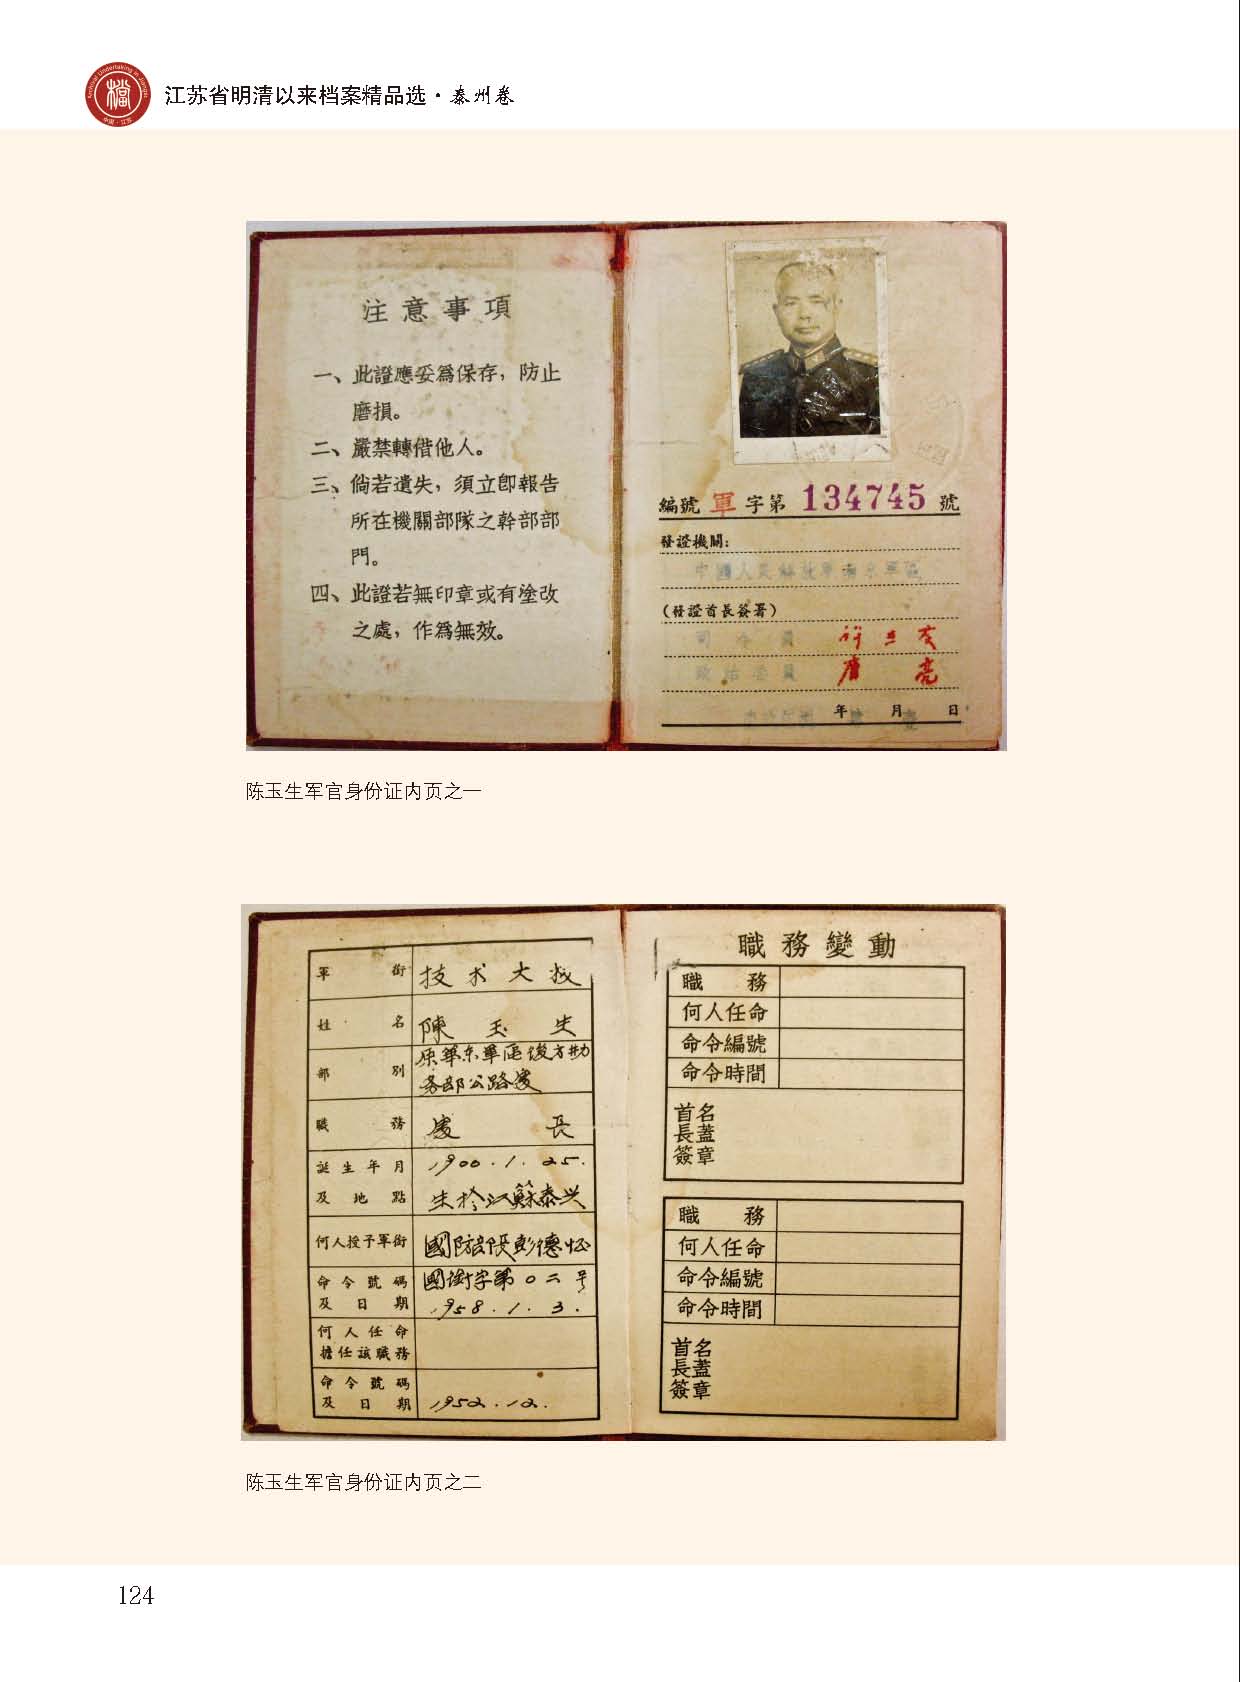 Archival Undertaking in Jiangsu
檔
中国·江苏
江苏省明清以来档案精品选·泰州卷
注意事項
一、此證應妥爲保存，防止
磨損。
二、嚴禁轉借他人。
三、倘若遺失，須立卽報告
所在機關部隊之幹部部
門。
四、此證若無印章或有塗改
之處，作爲無效。
編號 軍 字第 134745 號
發證機關：
中國人民解放軍南京軍區
（發證首長簽署）
司令員
政治委員 唐亮
年 月 日
陈玉生军官身份证内页之一
軍銜 技术大校
姓名 陳玉生
部別 原華东軍区後方勤
务部公路處
職務 處長
誕生年月 1900.1.25.
及地點 生於江蘇泰兴
何人授予軍銜 國防部長彭德怀
命令號碼 國銜字第〇二号
及日期 1958.1.3.
何人任命
擔任該職務
命令號碼
及日期 1952.12.
職務變動
職務
何人任命
命令編號
命令時間
首名
長蓋
簽章
職務
何人任命
命令編號
命令時間
首名
長蓋
簽章
陈玉生军官身份证内页之二
124